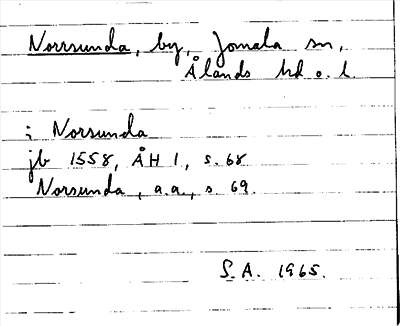 Norrsunda, by, Jomala sn,
Ålands hd o. l.
i Norsunda
jb 1558, ÅH 1, s. 68
Norsunda, a.a., s 69.
S.A. 1965.